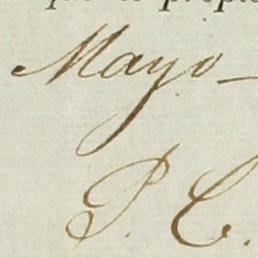 Mayo
P. C.